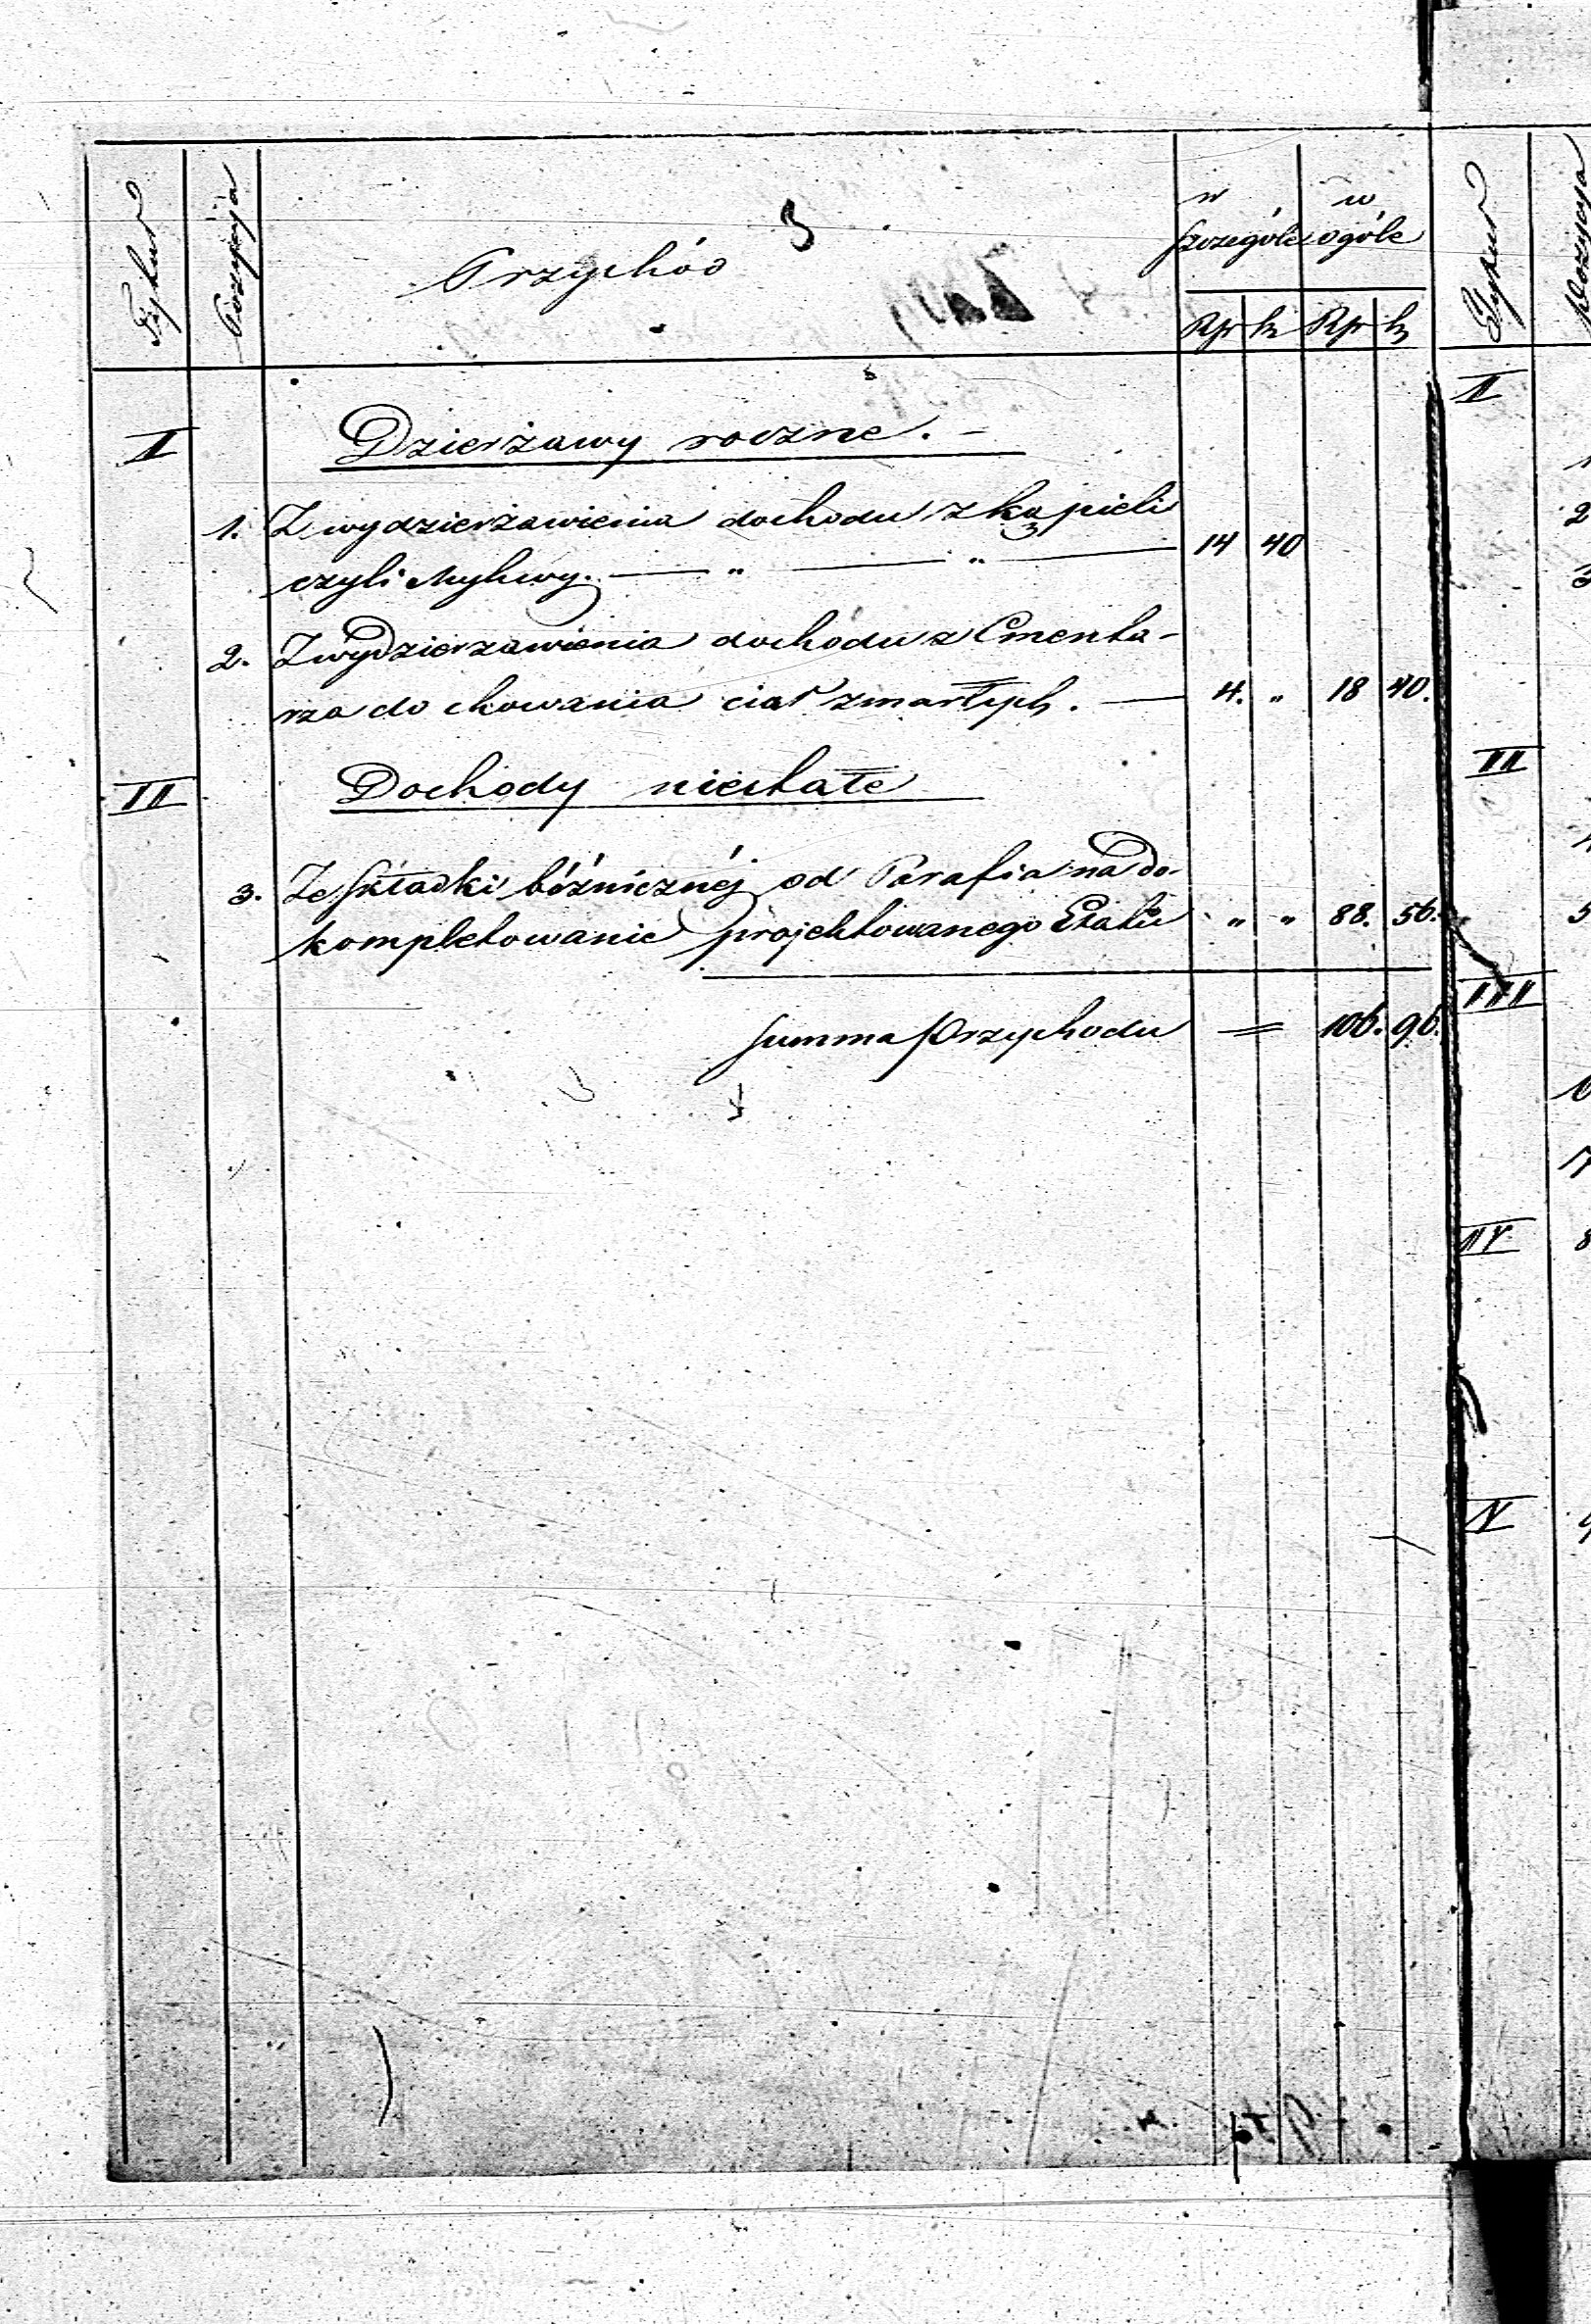 Tytuł Pozycyja Przychód w szczególe w ogóle Tytuł Pozycyja
Rsr k Rsr k
I Dzierżawy roczne. – I
1. Z wydzierżawienia dochodu z kąpieli
czyli Mykwy. — „ — „ — 14 40
2. Z wydzierzawienia dochodu z Cmenta-
rza do chowania ciał zmarłych. — 4. „ 18 40.
II Dochody niestałe II
3. Ze składki bóżnicznéj od Parafia na do-
kompletowanie projektowanego Etatu „ „ 88. 56.
III
Summa Przychodu = 106. 96.
IV
V